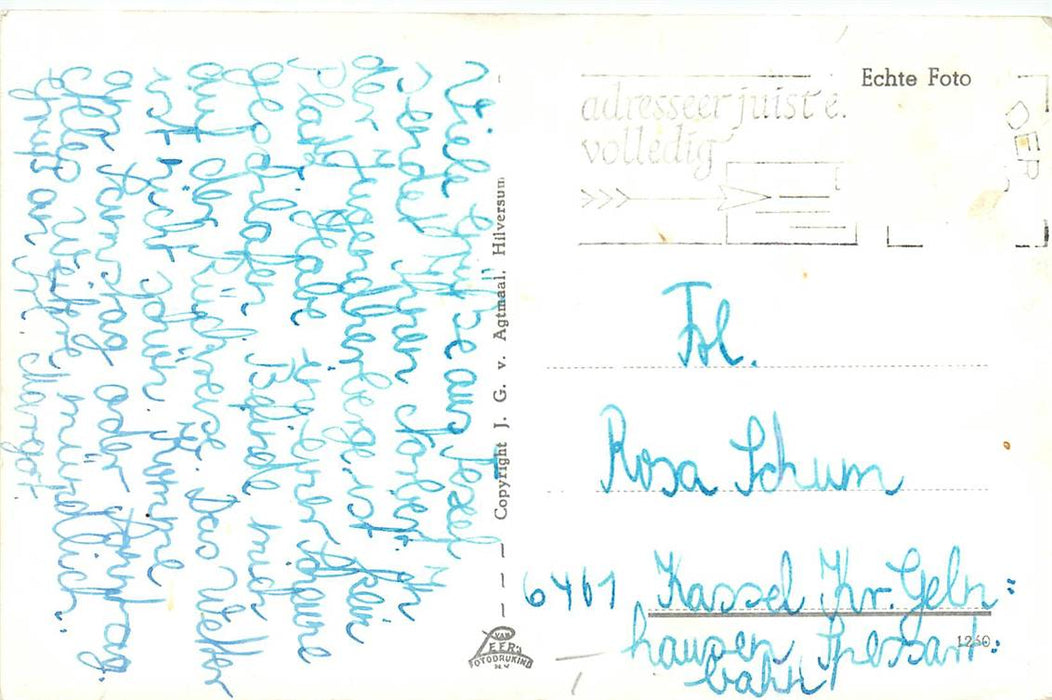 Viele Grüsse aus Texel
sendet Ihnen Norbert. In
der Jugendherberge ist kein
Platz. Habe im
geschlafen. Befinde mich
auf der Rückreise. Das Wetter
ist nicht schön. Komme
Samstag oder Sonntag.
alles Weitere mündlich.
Gruß an Frl. Margot
Copyright J. G. v. Agtmaal. Hilversum
VAN LEER'S
FOTODRUKIND
N.V
Echte Foto
adresseer juist e.
volledig
DEP
Frl.
Rosa Schum
6461 Kassel Kr. Geln:
hausen Spessart:
bahn
1260